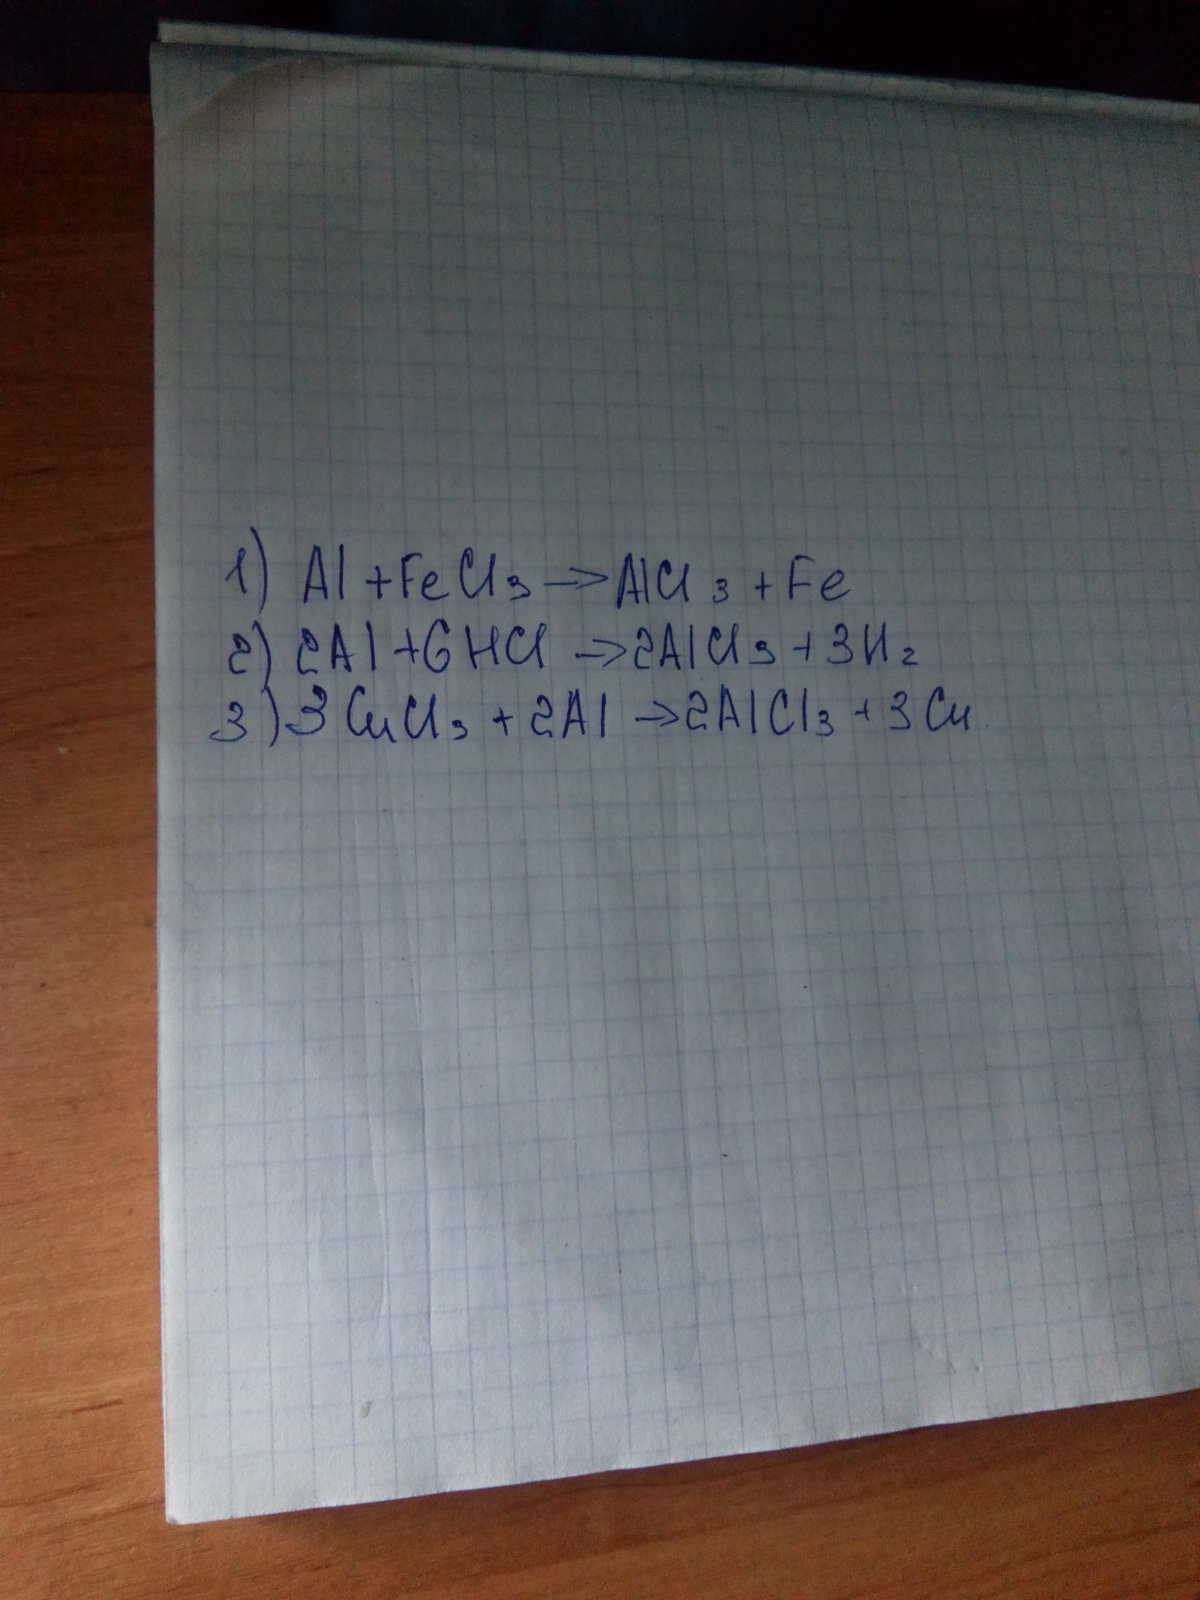 1) Al + FeCl3 → AlCl3 + Fe
2) 2Al + 6HCl → 2AlCl3 + 3H2
3) 3CuCl3 + 2Al → 2AlCl3 + 3Cu